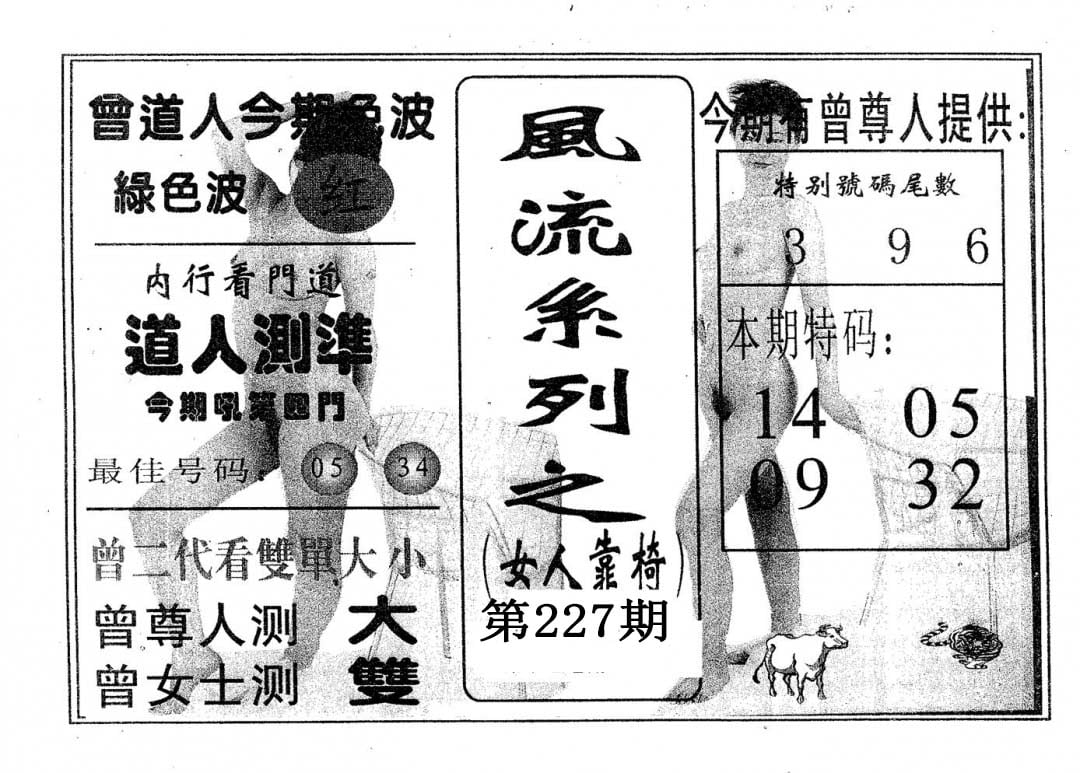 曾道人今期色波
綠色波 红
内行看門道
道人測準
今期吼第四門
最佳号码: 05 34
曾二代看雙單大小
曾尊人测 大
曾女士测 雙
風流系列之
(女人靠椅)
第227期
今期有曾尊人提供:
特别號碼尾數
3 9 6
本期特码:
14 05
09 32